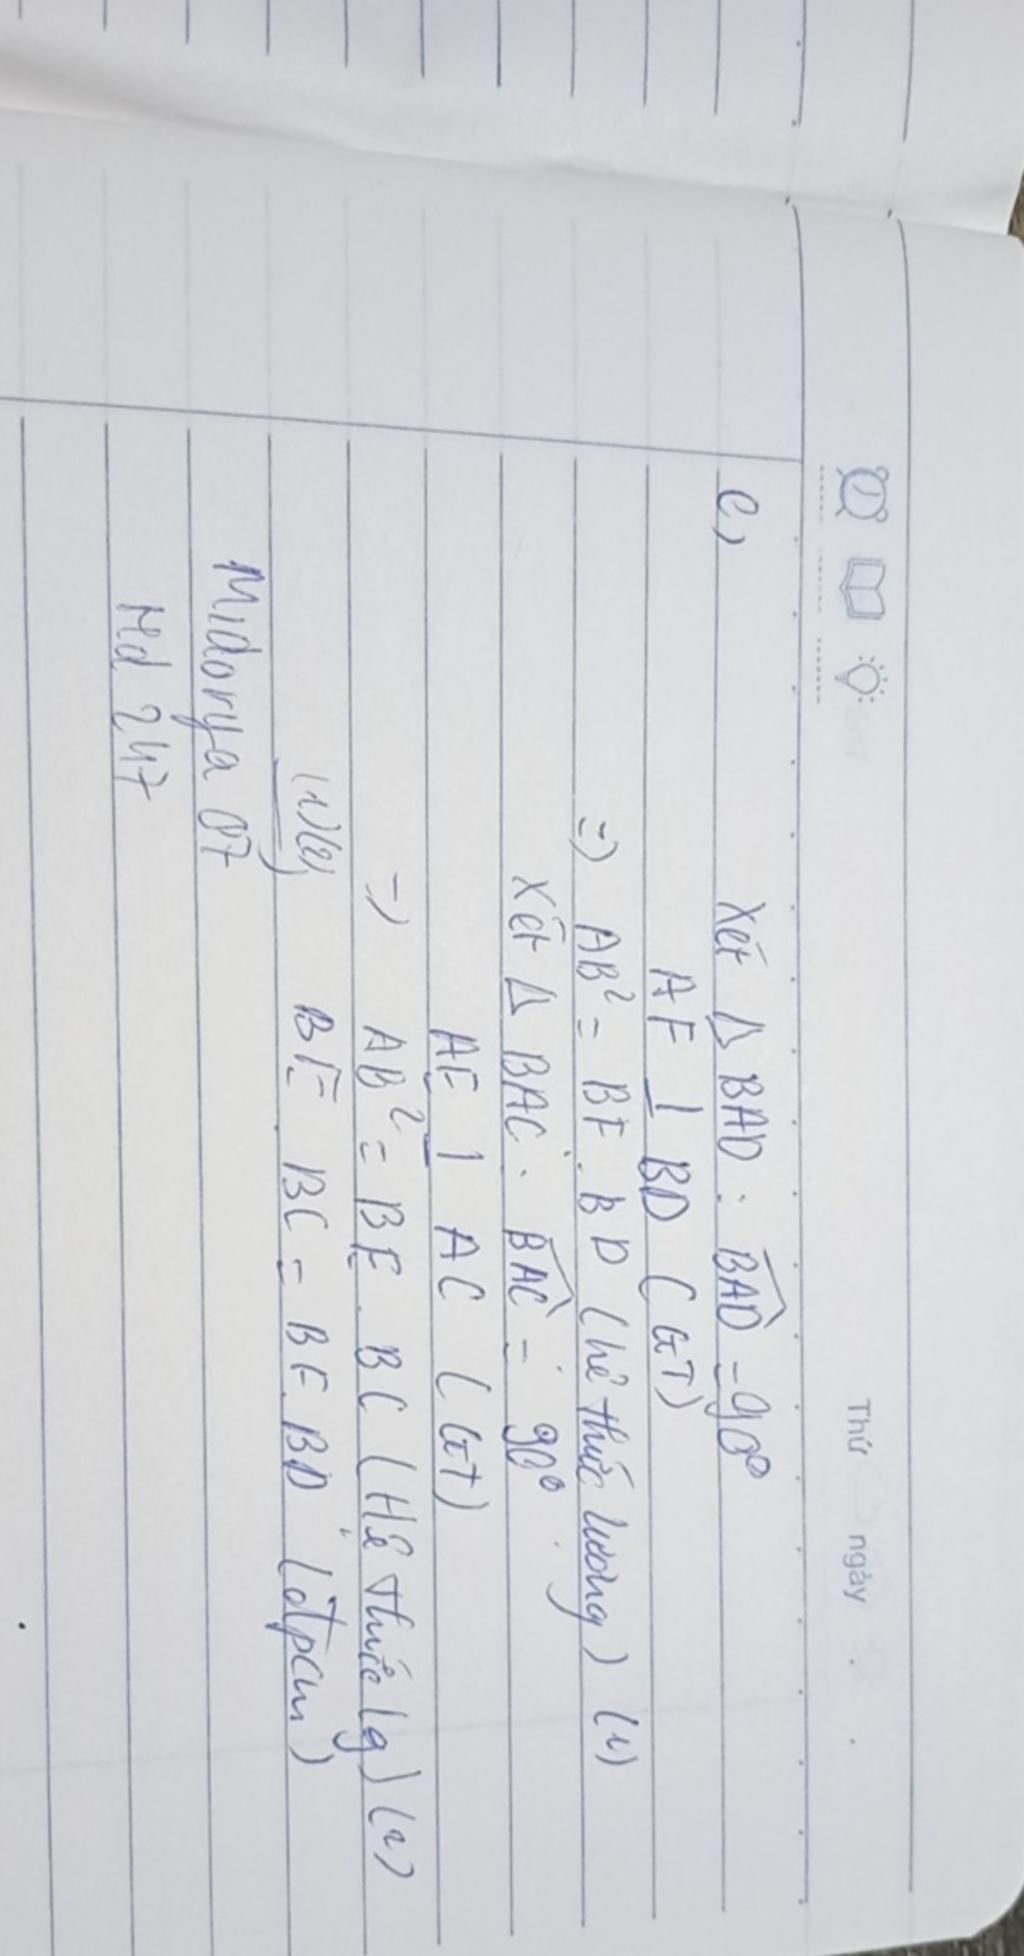 Thứ ngày
c, Xét Δ BAD : \widehat{BAD} = 90°
AF ⊥ BD (GT)
=) AB² = BF . BD (hệ thức lương) (1)
Xét Δ BAC : \widehat{BAC} = 90°
AE ⊥ AC (GT)
=) AB² = BE . BC (Hệ thức lg) (2)
(1)(2) BE BC = BF.BD (đpcm)
Midorya 07
Md 247